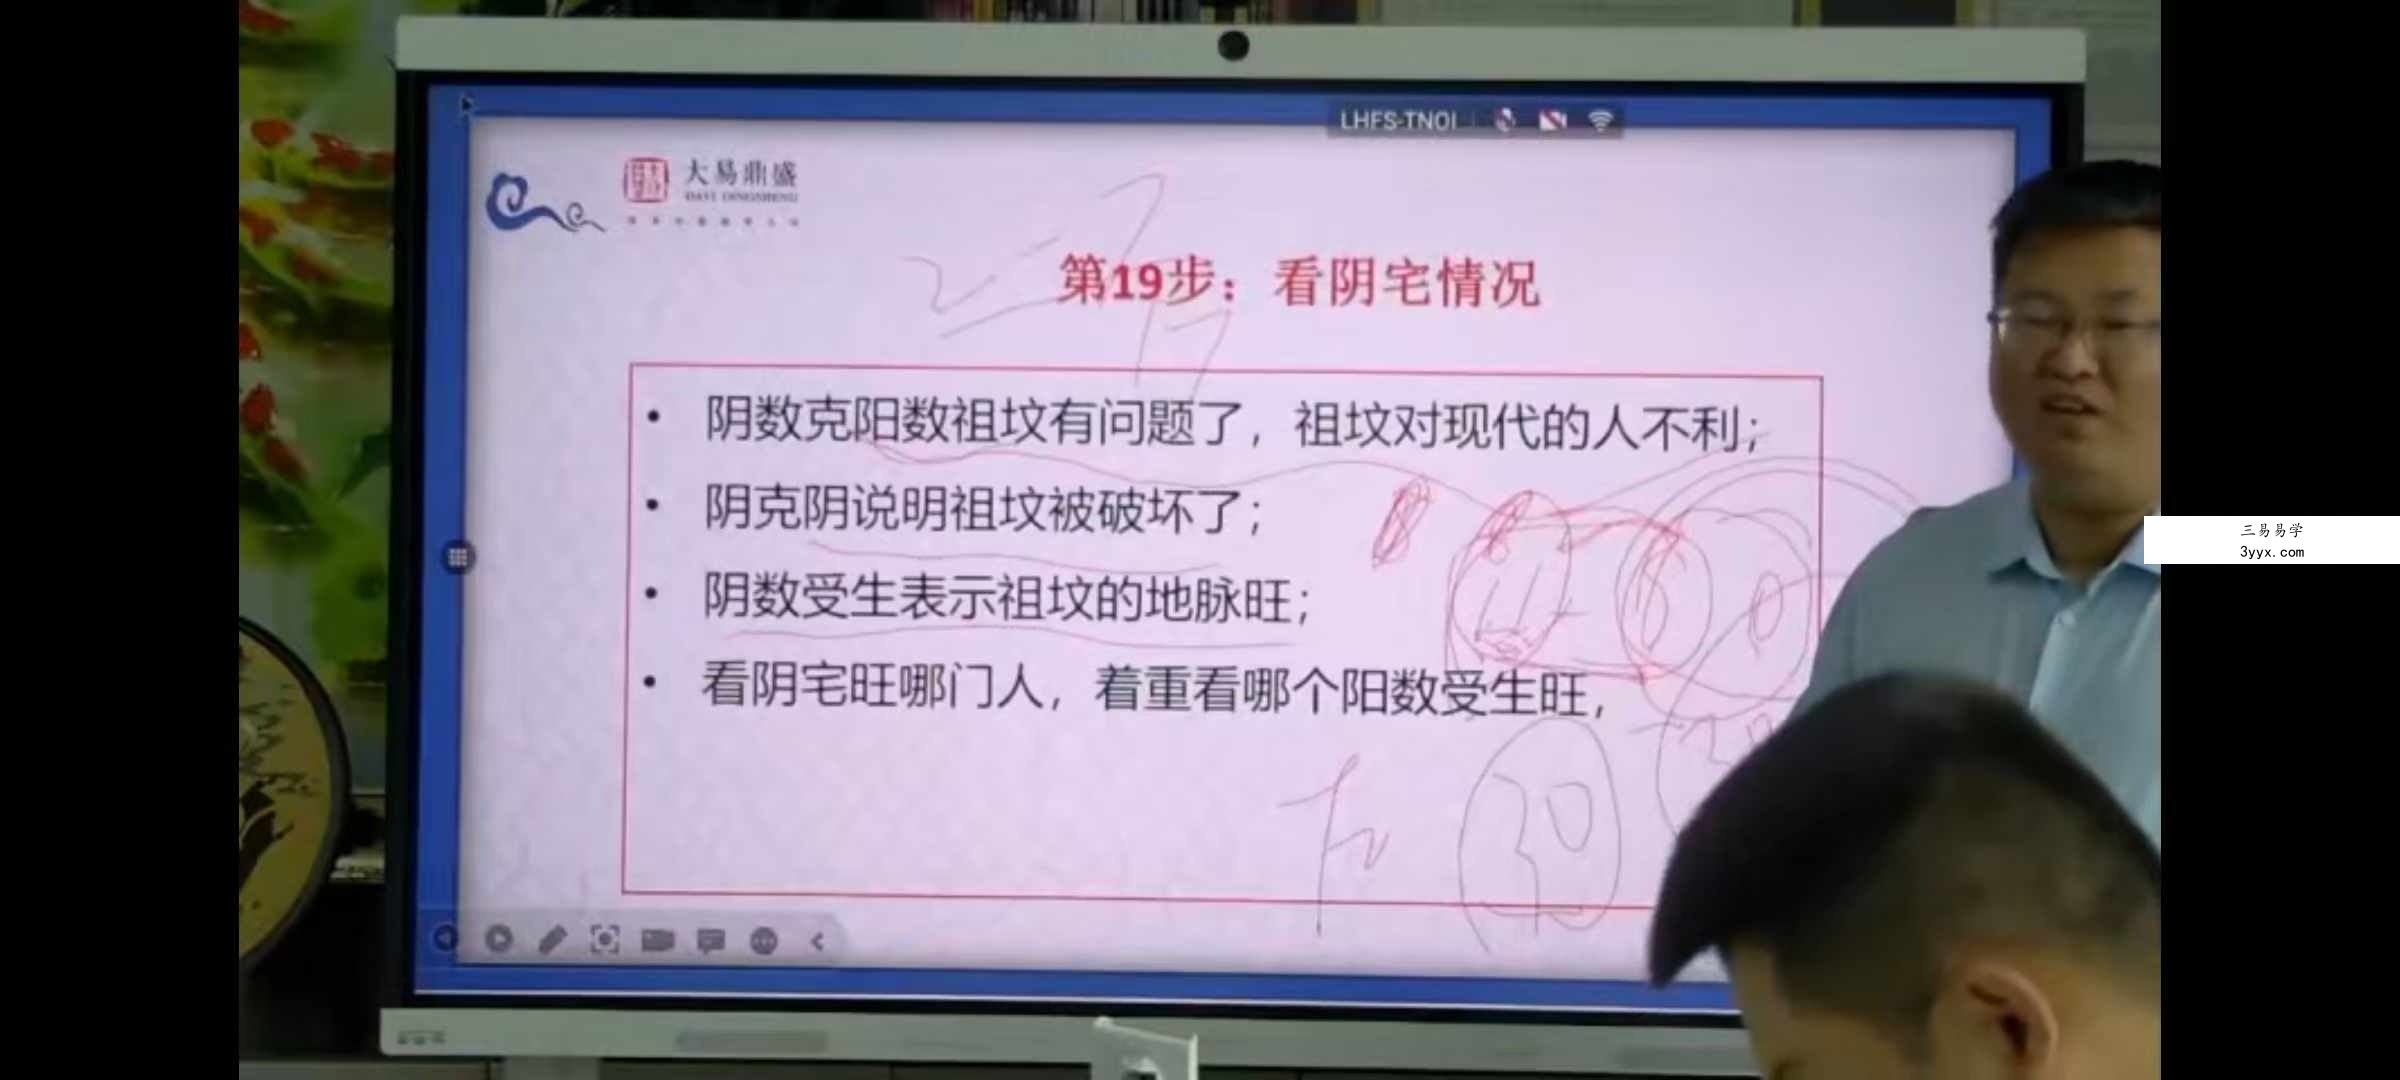 LHFS-TNOI
大易鼎盛
DAYI DINGSHENG
第19步：看阴宅情况
• 阴数克阳数祖坟有问题了，祖坟对现代的人不利；
• 阴克阴说明祖坟被破坏了；
• 阴数受生表示祖坟的地脉旺；
• 看阴宅旺哪门人，着重看哪个阳数受生旺，
三易易学
3yyx.com